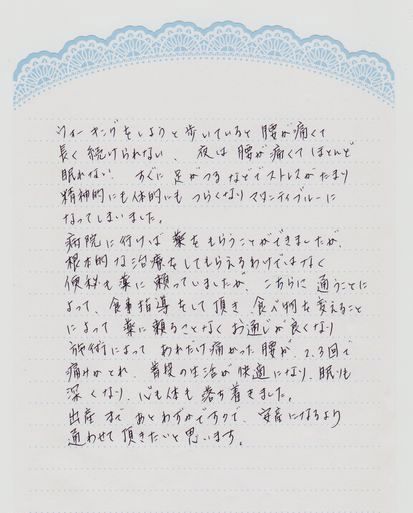 ウォーキングをしようと歩いていると腰が痛くて
長く続けられない、夜は腰が痛くてほとんど
眠れない！ すぐに足がつるなどでストレスがたまり
精神的にも体的にもつらくなりマタニティブルーに
なってしまいました。
病院に行けば薬をもらうことができましたが、
根本的な治療をしてもらえるわけではなく
便秘も薬に頼っていましたが、こちらに通うことに
よって、食事指導をして頂き食べ物を変えること
によって薬に頼ることなくお通じが良くなり
施術によってあれだけ痛かった腰が、2.3回で
痛みがとれ、普段の生活が快適になり、眠りも
深くなり、心も体も落ち着きました。
出産まであとわずかですので、安産になるよう
通わせて頂きたいと思います。